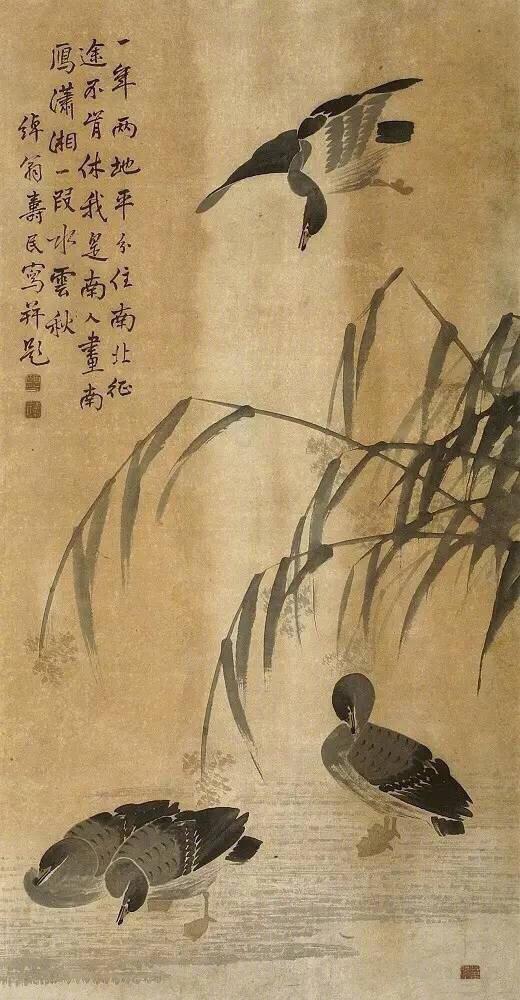 一年两地平分住南北征
途不肯休我是南人畫南
鴈瀟湘一段水雲秋
綽翁壽民寫并題